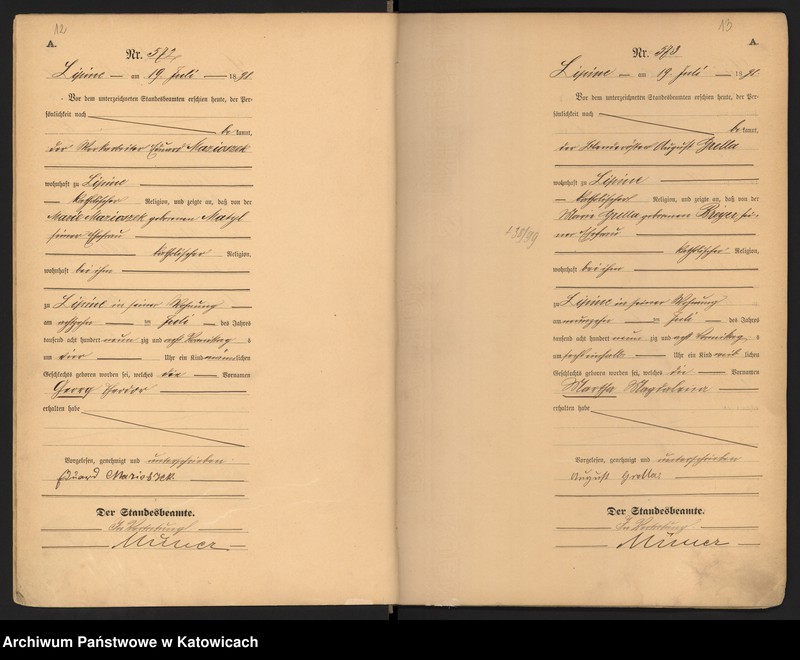 12
A.
Nr. 572
Lipine am 19. Juli 1891.
Vor dem unterzeichneten Standesbeamten erschien heute, der Per-
sönlichkeit nach
be kannt,
der Werkarbeiter Eduard Mariossek
wohnhaft zu Lipine
katholischer Religion, und zeigte an, daß von der
Marie Mariossek geborenen
seiner Ehefrau
katholischer Religion,
wohnhaft bei ihm
zu Lipine in seiner Wohnung
am achtzehn ten Juli des Jahres
tausend acht hundert neun zig und
um vier Uhr ein Kind männlichen
Geschlechts geboren worden sei, welches die Vornamen
Georg
erhalten habe
Vorgelesen, genehmigt und unterschrieben
Eduard Mariossek.
Der Standesbeamte.
In Vertretung
13
A.
Nr. 573
Lipine am 19. Juli 1891.
Vor dem unterzeichneten Standesbeamten erschien heute, der Per-
sönlichkeit nach
be kannt,
der August Grella
wohnhaft zu Lipine
katholischer Religion, und zeigte an, daß von der
Marie Grella geborenen sei-
ner Ehefrau
katholischer Religion,
wohnhaft bei ihm
zu Lipine in seiner Wohnung
am neunzehn ten Juli des Jahres
tausend acht hundert neun zig und
um Uhr ein Kind weib lichen
Geschlechts geboren worden sei, welches die Vornamen
Martha Magdalena
erhalten habe
Vorgelesen, genehmigt und unterschrieben
August Grella
Der Standesbeamte.
In Vertretung
Archiwum Państwowe w Katowicach